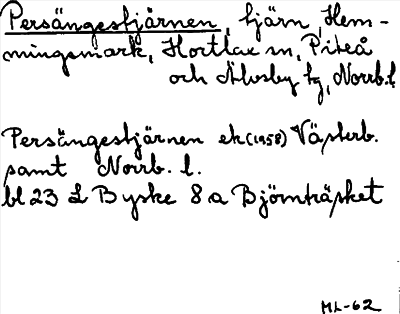 Persängestjärnen, tjärn, Hem-
mingsmark, Hortlax sn, Piteå
och Älvsby tg, Norrb.l.
Persängestjärnen ek(1958) Västerb.
samt Norrb. l.
bl 23 L Byske 8 a Björnträsket
ML-62